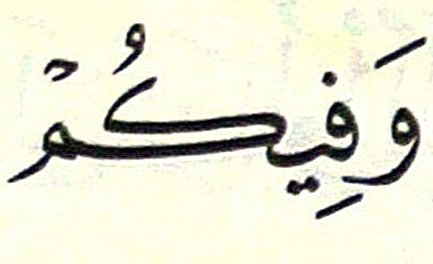 وَفِيكُمْ